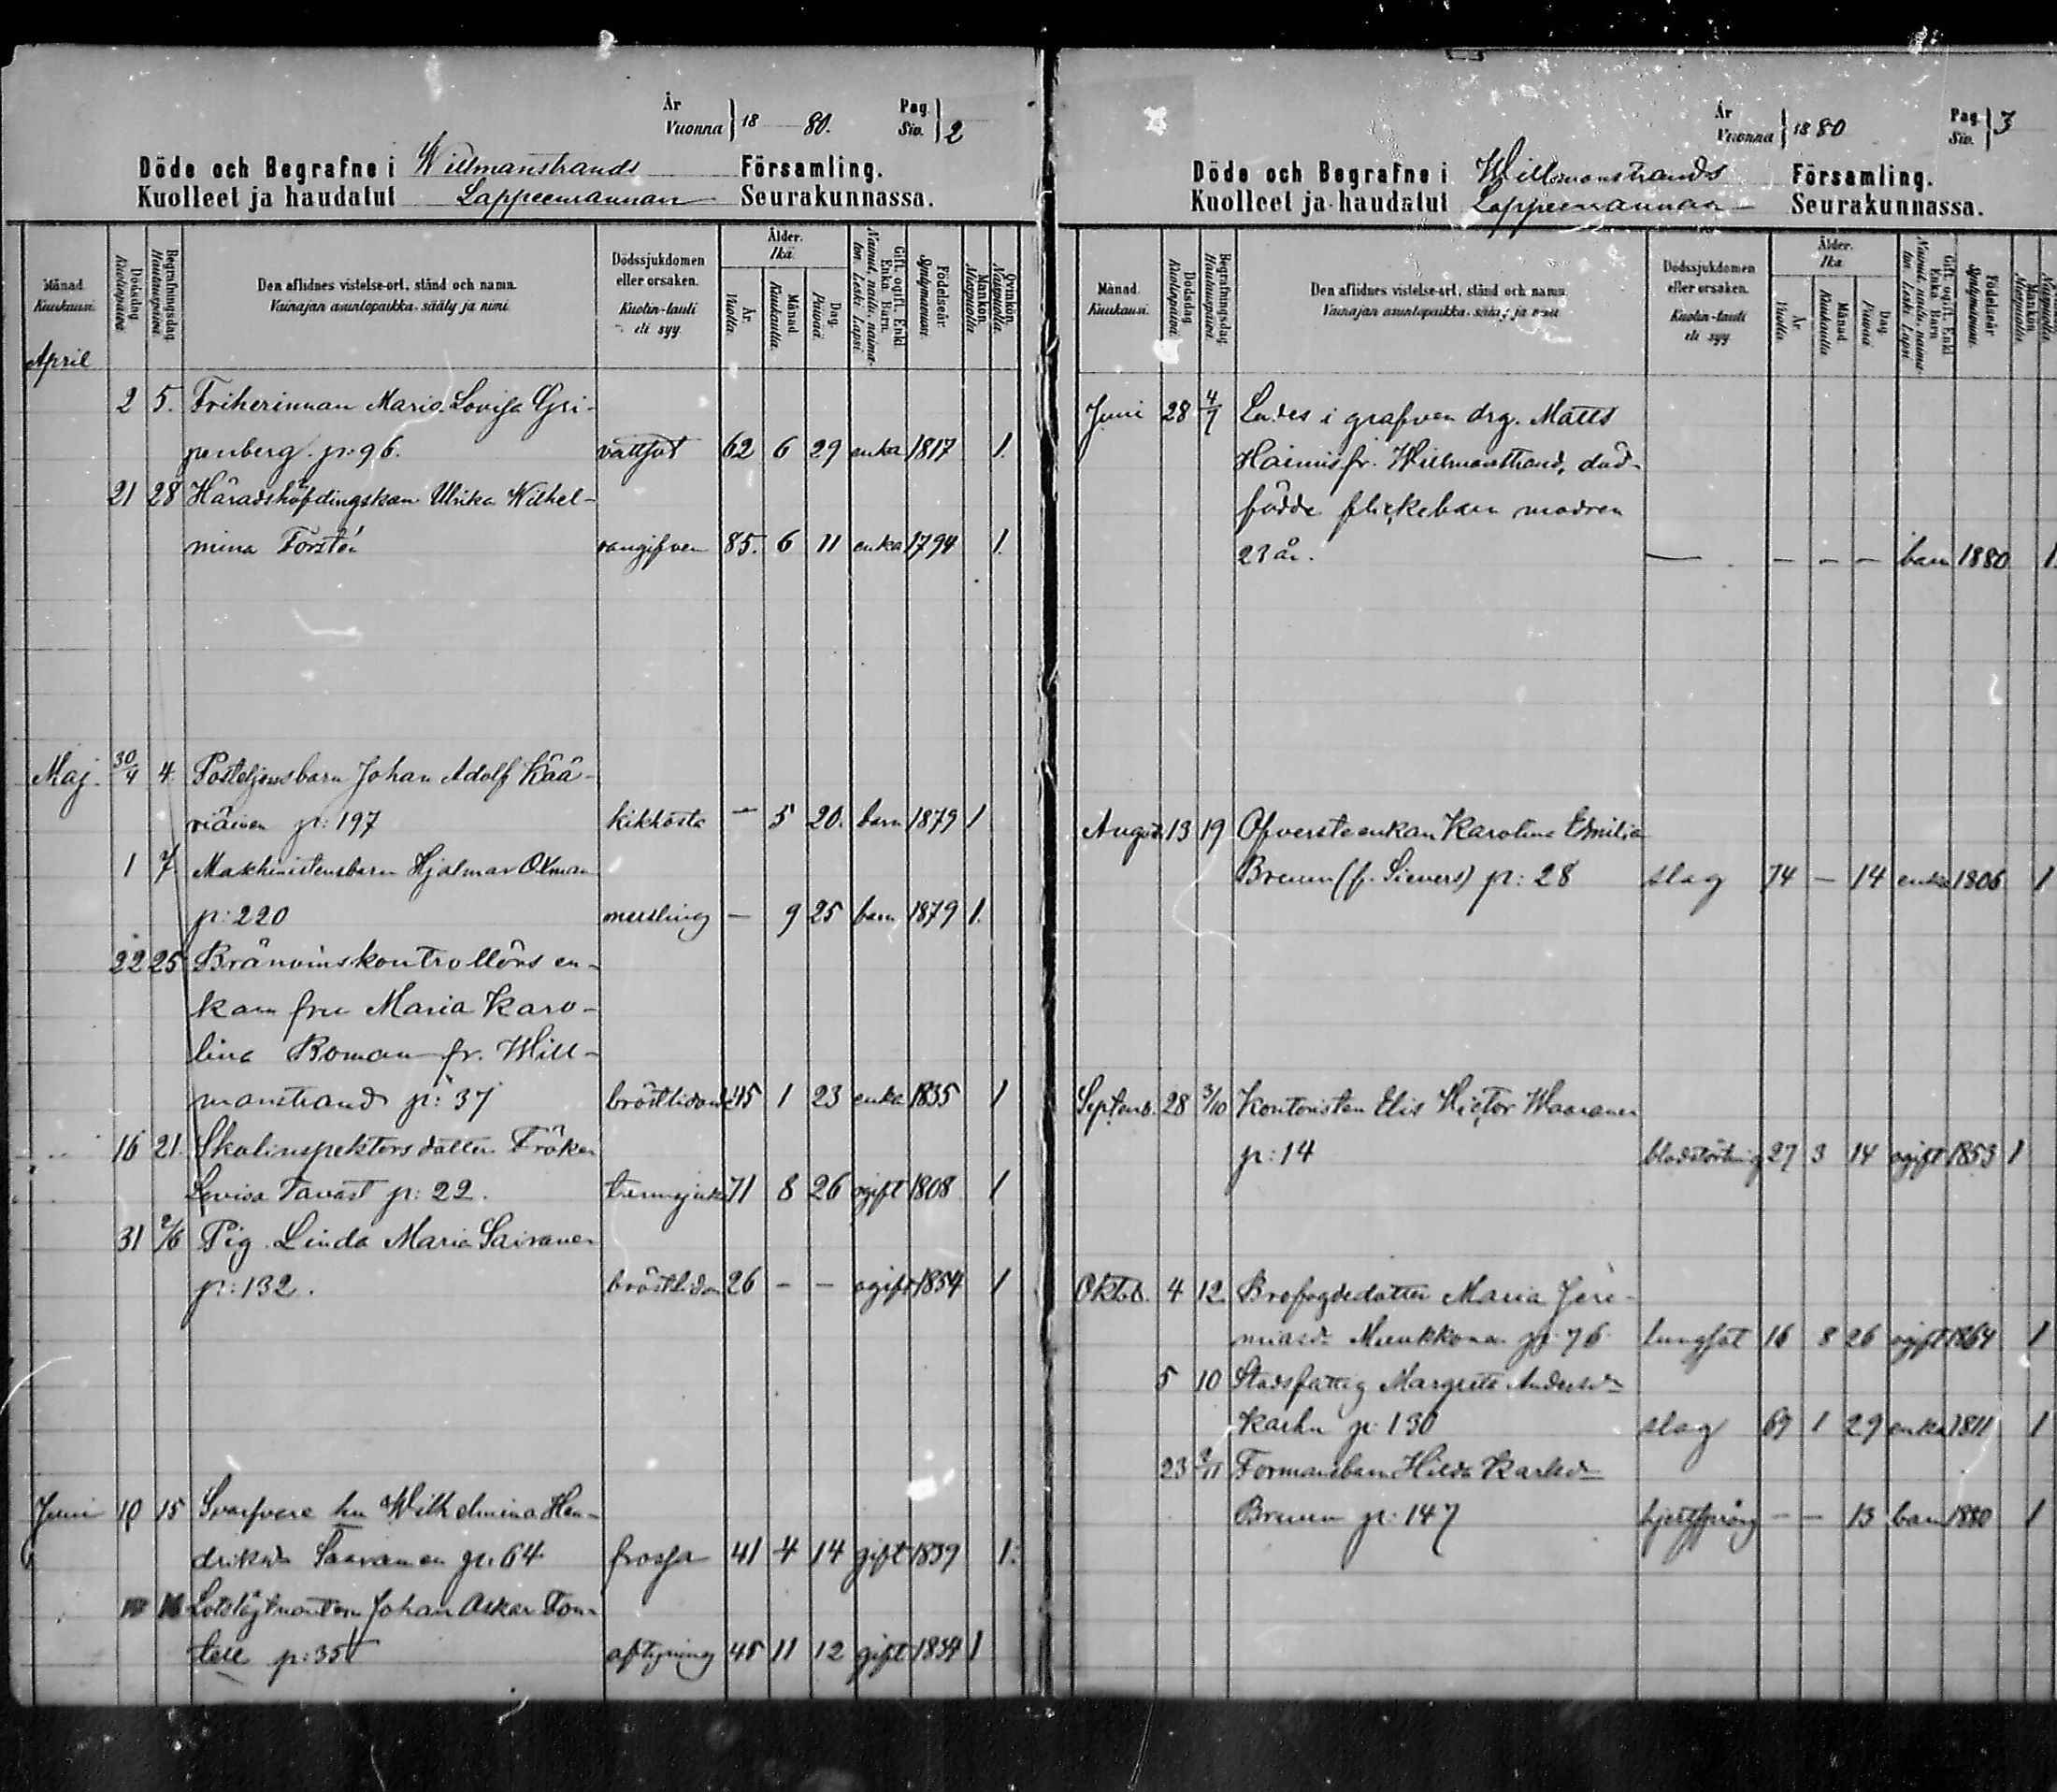 År
Vuonna } 18 80.
Pag.
Siv. } 2
Döde och Begrafne i Willmanstrands Församling.
Kuolleet ja haudatut Lappeenrannan Seurakunnassa.
Månad. Kuukausi.
Dödsdag. Kuolinpäivä.
Begrafningsdag. Hautauspäivä.
Den aflidnes vistelse-ort, stånd och namn.
Vainajan asuntopaikka, sääty ja nimi.
Dödssjukdomen eller orsaken.
Kuolin-tauti eli syy.
Ålder. Ikä.
År. Vuotta.
Månad. Kuukautta.
Dag. Päivää.
Gift, ogift, Enkl. Enka, Barn.
Nainut, naitu, naimaton, Leski, Lapsi.
Födelseår. Syntymävuosi.
Mankön. Miespuolia.
Qvinkön. Naispuolia.
April
2 5. Friherinnan Maria Lovisa Gri-
penberg. p: 96. vattsot 62 6 29 enka 1817 1.
21 28 Häradshöfdingskan Ulrika Wilhel-
mina Forstén 85. 6 11 enka 1794 1.
Maj. 30/4 4. Posteljonsbarn Johan Adolf Kää-
riäinen p: 197 kikhosta — 5 20. barn 1879 1
1 7 Makhinistensbarn Hjalmar
p: 220 messling — 9 25 barn 1879 1.
22 25 Bränvinskontrollörs en-
kan fru Maria Karo-
lina Boman fr. Will-
manstrand p: 37 bröstlidande 45 1 23 enka 1835 1
16 21. Skolinspektors dotter Fröken
Lovisa Tavast p: 22. 71 8 26 ogift 1808 1
31 2/6 Pig. Linda Maria Saivanen
p: 132. bröstlidan 26 - - ogift 1854 1
Juni 10 15 Svarfvare hu Wilhelmina Hen-
driksdr p: 64 frossa 41 4 14 gift 1839 1.
16 Lotslöjtnanten Johan Oskar Fon-
tell p: 35 aftyning 45 11 12 gift 1834 1
År
Vuonna } 18 80
Pag.
Siv. } 3
Döde och Begrafne i Willmanstrands Församling.
Kuolleet ja haudatut Lappeenrannan Seurakunnassa.
Månad. Kuukausi.
Dödsdag. Kuolinpäivä.
Begrafningsdag. Hautauspäivä.
Den aflidnes vistelse-ort, stånd och namn.
Vainajan asuntopaikka, sääty ja nimi.
Dödssjukdomen eller orsaken.
Kuolin-tauti eli syy.
Ålder. Ikä.
År. Vuotta.
Månad. Kuukautta.
Dag. Päivää.
Gift, ogift, Enkl. Enka, Barn.
Nainut, naitu, naimaton, Leski, Lapsi.
Födelseår. Syntymävuosi.
Mankön. Miespuolia.
Naispuolia.
Juni 28 4/7 Lades i grafven drg. Matts
fr. Willmanstrand, död-
födde flickebarn modren
23 år. — — — — barn 1880 1.
August. 13 19 Öfversteenkan Karolina Emilia
Bruun (f. Sievers) p: 28 slag 74 — 14 enka 1806 1
Septemb. 28 3/10 Kontoristen Elis Victor
p: 14 blodstörtning 27 3 14 ogift 1853 1
Oktob. 4 12 Brofogdedotter Maria Jere-
miasdr Munkkonen p: 76 lungsot 16 8 26 ogift 1864 1
5 10 Stadsfattig Margreta Andersdr
Karhu p: 130 slag 69 1 29 enka 1811 1
23 2/11 Formansbarn Hilda Karlsdr
Bruun p: 147 hjertsprång — — 13 barn 1880 1